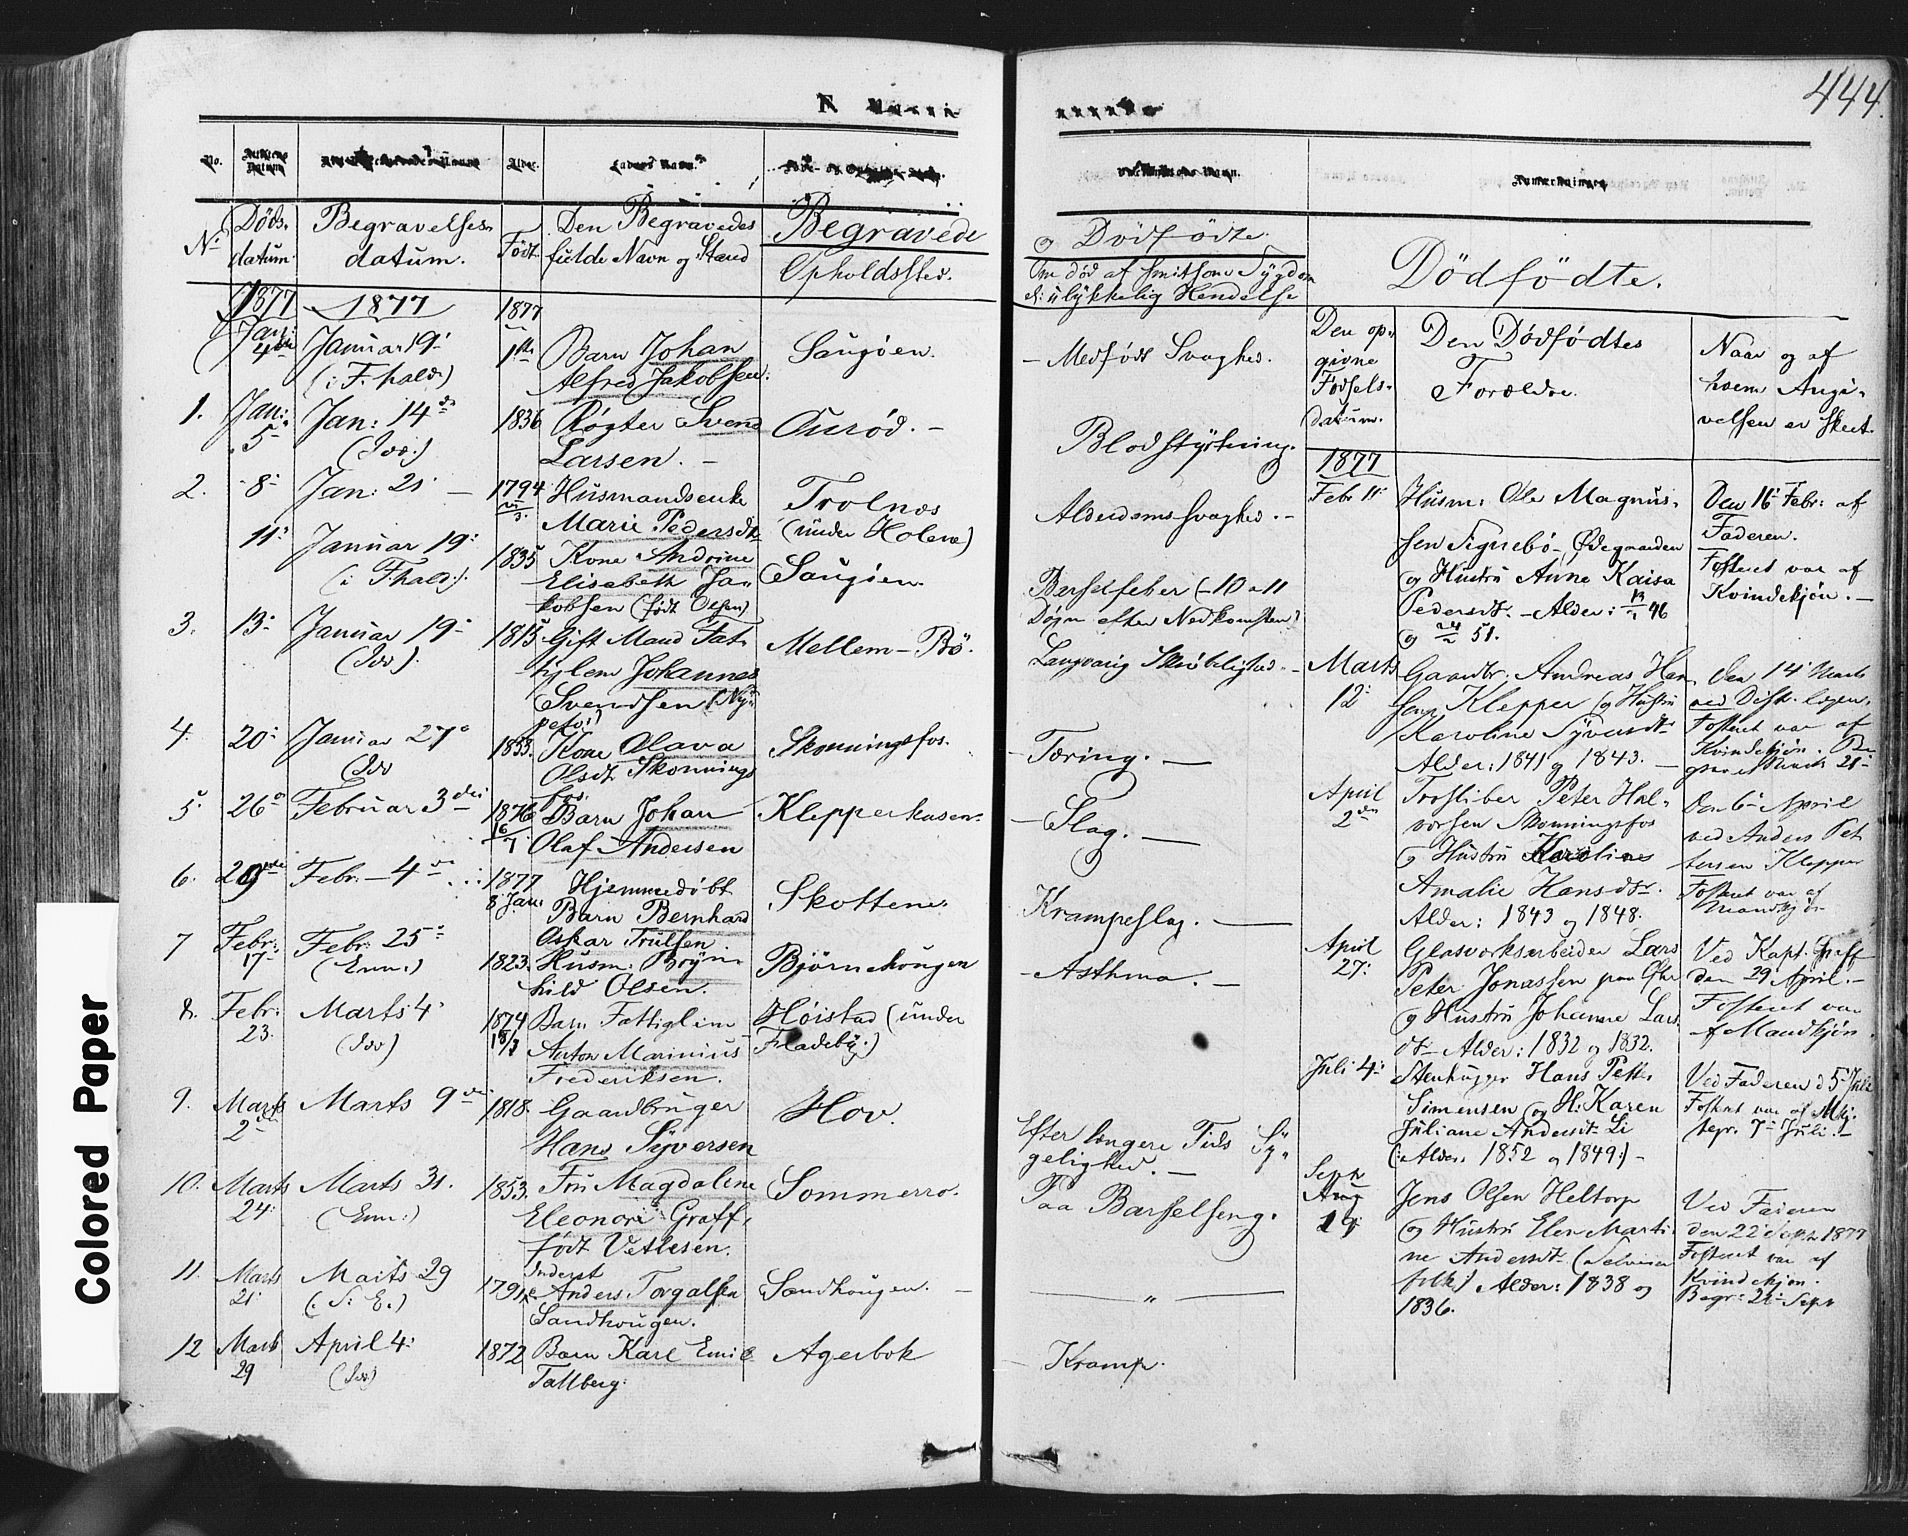 444.
No.
Døds-
datum.
Begravelses-
datum.
Født.
Den Begravedes
fulde Navn og Stand
Begravede
Opholdssted.
og Dødfødte.
Om død af smitsom Sygdom
el: ulykkelig Hendelse
Dødfødte.
Den op-
givne
Fødsels-
datum.
Den Dødfødtes
Forældre.
Naar og af
hvem Angi-
velsen er skeet.
1877
1877
1877
Jan:
4de
Januar 19:
(i F.hald:)
1ste
Barn Johan
Alfred Jakobsen.
Saugøen.
- Medfødt Svaghed.
1.
Jan:
5
Jan: 14de
(Ids:)
1836
Røgter Svend
Larsen. -
Aurød. -
Blodstyrtning.
2.
8
Jan: 21 -
1794
Husmandsenke
Marie Pedersdt.
Trolnæs
(under Holene)
Alderdomssvaghed. -
11:
Januar 19:
(i F.hald:).
1835
Kone Andrine
Elisabeth Ja-
kobsen (født Olsen)
Saugøen.
Barselfeber (-10 a 11
Døgn efter Nedkomsten)
3.
13:
Januar 19:
(Ids:).
1815
Gift Mand Fat-
tiglem Johannes
Svendsen (Ny-
Mellem-Bø.
Langvarig Skrøbelighed. -
4.
20:
Januar 27:
(Ids
1853.
Kone Olava
Olsdt. Skonnings-
fos.
Skonningsfos.
- Tæring. -
5.
26:
Februar 3die
1876
16/7
Barn Johan
Olaf Andersen
Klepperkasen.
- Slag. -
6.
29de
Febr: 4de
1877
8 Jan.
Hjemmedøbt
Barn Bernhard
Oskar Trulsen.
Skottene
Krampeslag. -
7
Febr:
17
Febr: 25:
(Enn:)
1823.
Husm: Brÿn-
hild Olsen.
Bjørnehougen
- Asthma. -
8.
Febr:
23.
Marts 4:
(Ids)
1874
18/3
Barn Fattiglem
Anton Marinius
Frederiksen.
Høistad (under
Fladebÿ.)
9.
Marts
2den
Marts 9de
1818.
Gaardbruger
Hans Sÿversen
Hov.
Efter længere Tids Sÿ-
gelighed. -
10.
Marts
24:
Marts 31.
(Enn:)
1853.
Fru Magdalene
Eleonore Graff,
født Vetlesen.
Sommerro.
Paa Barselseng.
11.
Marts
21:
Marts 29
(: S: E:)
1791.
Inderst
Anders Torgalsen
Sandhougen.
Sandhougen. -
- " -
12
Marts
29
April 4:
(Ids)
1872
Barn Karl Emil
Tallberg.
Agerbok
- Kramp.
1877
Febr: 11:
Husm: Ole Magnus-
sen Signebø, Ødegaarden
og Hustru Anne Kaisa
Pedersdt. - Alder: 46
og 51.
Den 16 Febr: af
Faderen.
Fosteret var af
Kvindekjøn. -
Marts
12:
Gaardbr: Andreas Han-
sen Klepper og Hustru
Karoline Syversdt.
Alder: 1841 og 1843. -
Den 14 Marts
ved Distr. lægen.
Fosteret var af
Kvindekjøn. Be-
gravet Marts 21:
April
2den
Torsliber Peter Hal-
vorsen Skonningsfos
og Hustru Karoline
Amalie Hansdt.
Alder: 1843 og 1848.
Den 6 April
ved Anders Pet-
tersen Klepper
Fosteret var af
Mandkjøn
April
27:
Glasværksarbeider Lars
Peter Jonassen
og Hustru Johanne Lars-
dt. Alder: 1832 og 1832.
Ved Kapt. Graff
den 29 April. -
Fosteret var
af Mandkjøn.
Juli 4:
Stenhugger Hans Petter
Simensen og H: Karen
Juliane Andersdt. Li
(: Alder: 1852 og 1849:) -
Ved Faderen d 5 Juli
Fosteret var af Mkj.
begr. 7 Juli. -
Sept
Aug
19:
Jens Olsen Heltorp
og Hustru Elen Marti-
ne Andersdt. (Selveier-
folk) Alder: 1838 og
1836.
Ved Faderen
den 22 Sept. 1877
Fosteret var af
Kvindekjøn.
Begr: 22: Sept
Colored Paper